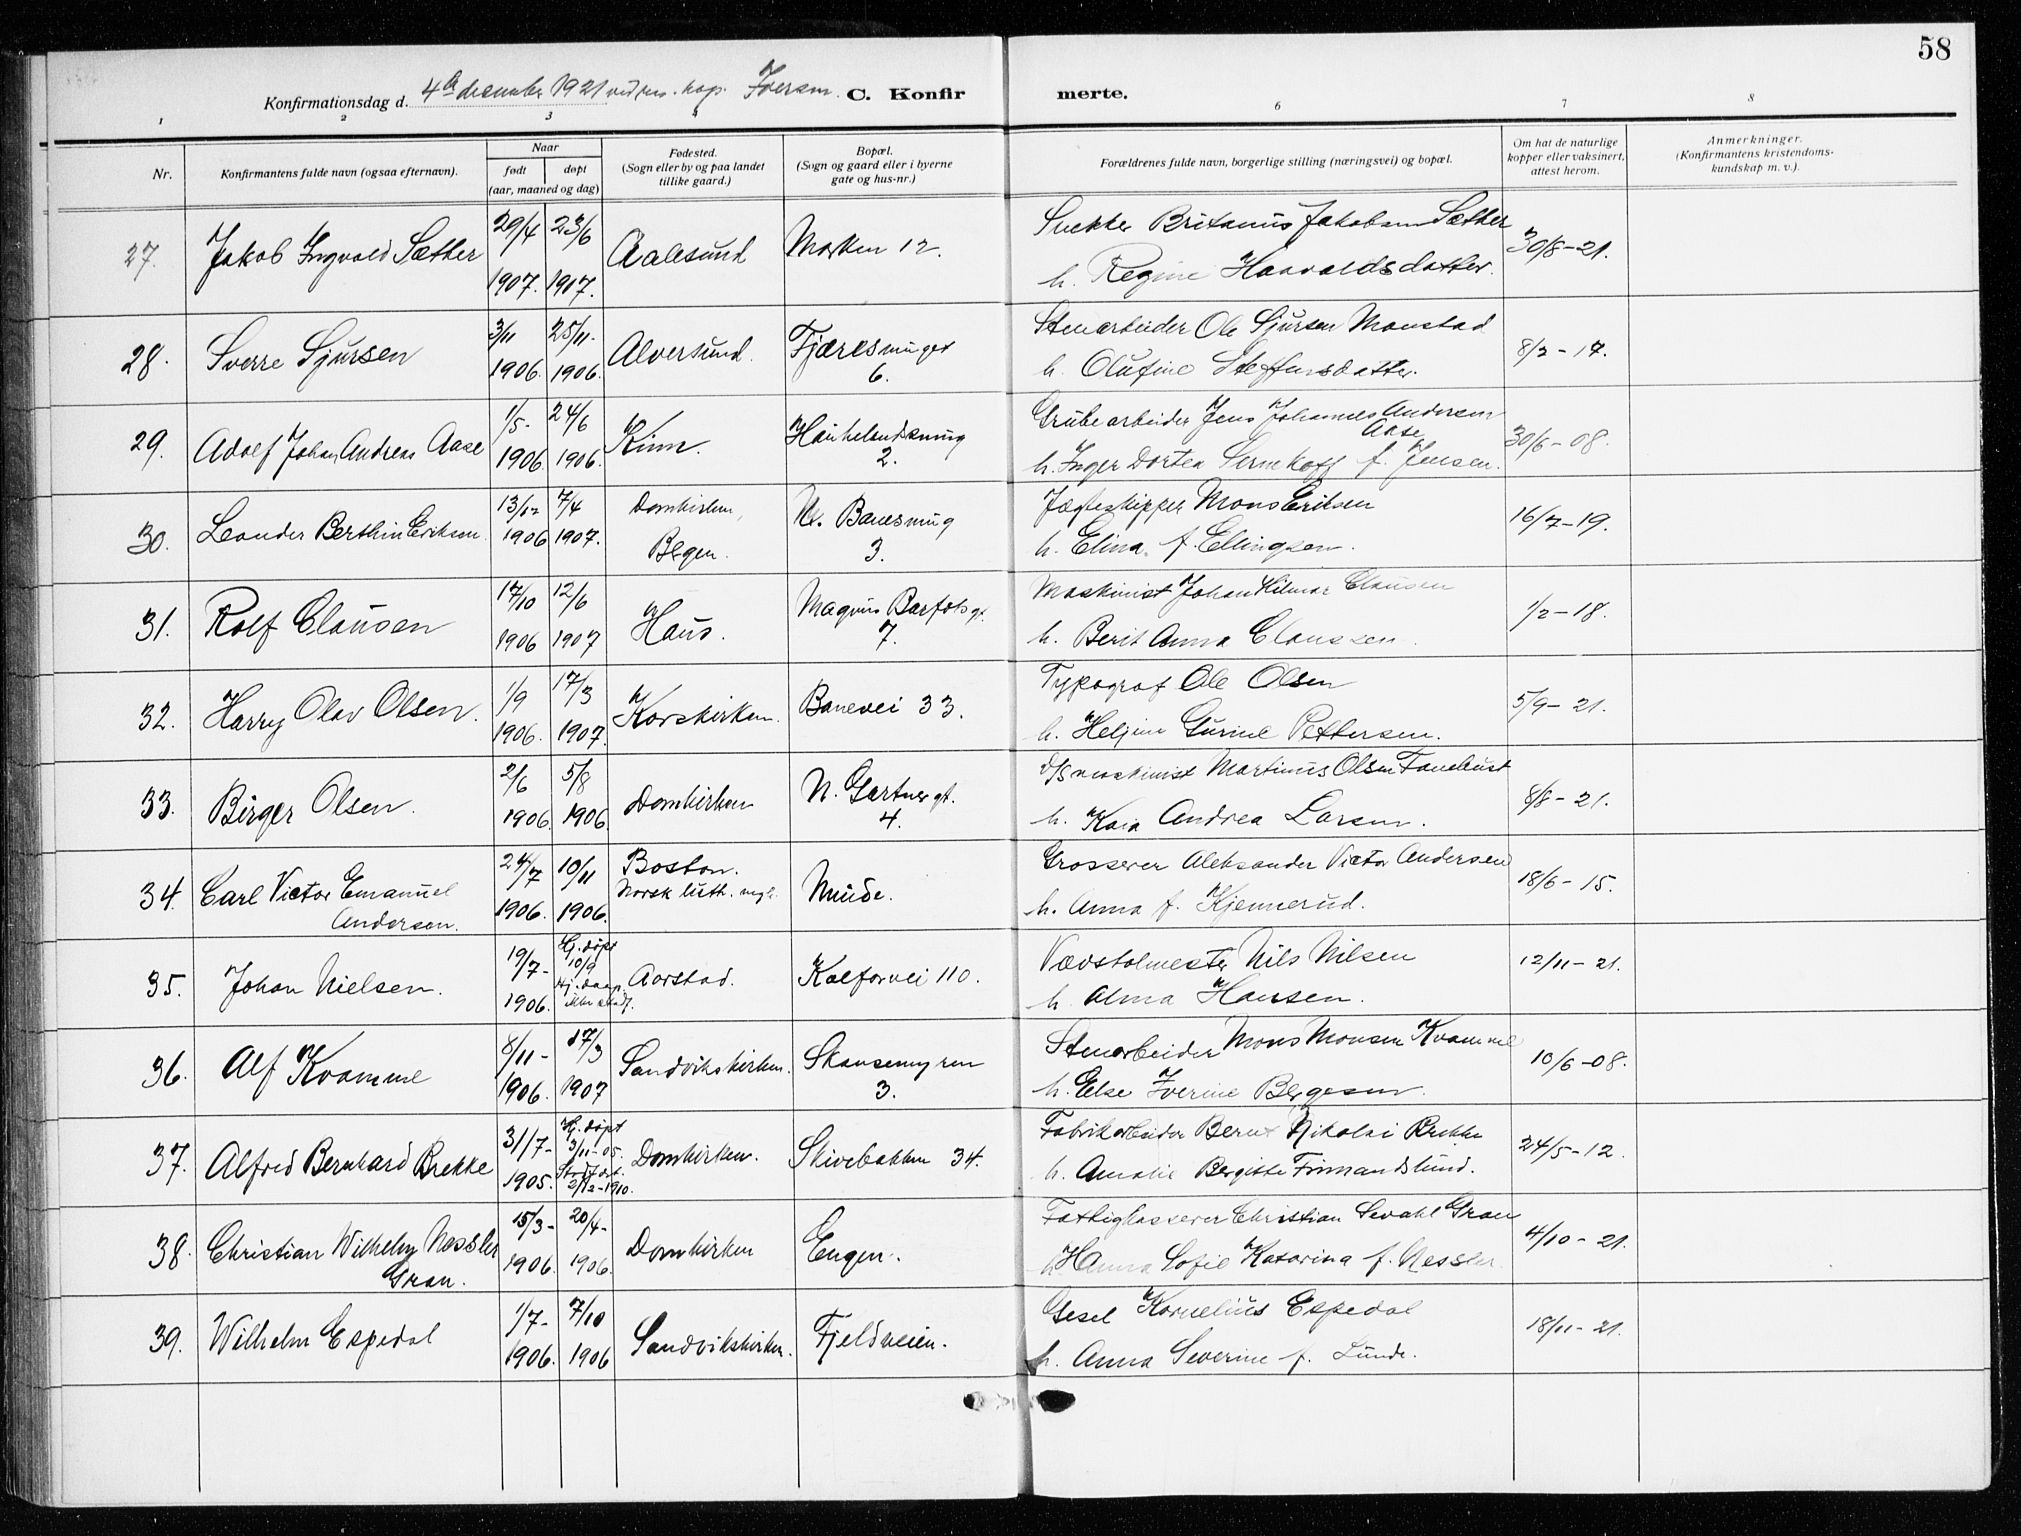 58
Konfirmationsdag d. 4de desember 1921 ved res. kap. Iversen. C. Konfir merte.
1 2 3 4 5 6 7 8
Nr. Konfirmantens fulde navn (ogsaa efternavn). Naar født døpt (aar, maaned og dag) Fødested. (Sogn eller by og paa landet tillike gaard.) Bopæl. (Sogn og gaard eller i byerne gate og hus-nr.) Forældrenes fulde navn, borgerlige stilling (næringsvei) og bopæl. Om hat de naturlige kopper eller vaksinert, attest herom. Anmerkninger. (Konfirmantens kristendoms-kundskap m. v.).
27. Jakob Ingvald Sæther 29/4 1907. 23/6 1907. Aalesund Marken 12. Snekker Britanus Jakobsen Sæther 30/8-21.
h. Regine Haavaldsdatter.
28. Sverre Sjursen 3/11 1906. 25/11. 1906. Alversund. Fjæresmuget 6. Stenarbeider Ole Sjursen Monstad 8/2-17.
h. Olufine Steffensdatter.
29. Adolf Johan Andreas Aase 1/5- 1906. 24/6 1906. Kinn. Haukelandsmug 2. Grubearbeider Jens Johannes Andersen Aase 30/6-08.
h. Inger Dortea f. Jensen.
30. Leander Berthin Eriksen. 13/12 1906 7/4 1907. Domkirken, Bergen. N. Banesmug 3. Jægteskipper Mons Eriksen 16/7-19.
h. Elina f. Ellingsen.
31. Rolf Clausen 17/10 1906 12/6 1907 Haus. Magnus Barfots gt. 7. Maskinist Johan Hilmar Clausen 1/2-18.
h. Berit Anna Claussen.
32. Harry Olav Olsen. 1/9 1906. 17/3 1907. Korskirken. Banevei 33. Typograf Ole Olsen 5/9-21.
h. Heljine Gurine Pettersen.
33. Birger Olsen. 2/6 1906. 5/8 1906. Domkirken N. Gartnergt. 4. D/S maskinist Martinus Olsen Tanebust 8/8-21.
h. Kaia Andrea Larsen.
34. Carl Victor Emanuel 24/7 1906. 10/11 1906. Boston. Norsk luth. mgh. Minde. Grosserer Aleksander Victor Andersen 18/6-15.
Andersen. h. Anna f. Kjennerud.
35. Johan Nielsen. 19/7- 1906. Hj. døpt 10/9 Hj. daap ikke stadf. Aarstad. Kalfarvei 110. Vævstolmester Nils Nilsen 12/11-21.
h. Alma Hansen.
36. Alf Kvamme 8/11- 1906. 17/3 1907 Sandvikskirken. Skansemyren 3. Stenarbeider Mons Monsen Kvamme 10/6-08.
h. Else Iverine Bergesen.
37. Alfred Bernhard Brekke 31/7- 1905. Hj. døpt 3/11-05. Stadf. d. 2/12-1910. Domkirken. Skivebakken 34. Fabrikarbeider Bernt Nikolai Brekke 24/5-12.
h. Amalie Bergitte Finmandslund.
38. Christian Wilhelm Nessler 15/3- 1906. 20/4- 1906. Domkirken Engen. Fattigkasserer Christian Sevald Gran 4/10-21.
Gran. h. Hanna Sofie Katarina f. Nessler.
39. Wilhelm Espedal 1/7- 1906. 7/10 1906 Sandvikskirken. Fjeldveien. Gesel Kornelius Espedal 18/11-21.
h. Anna Severine f. Lunde.